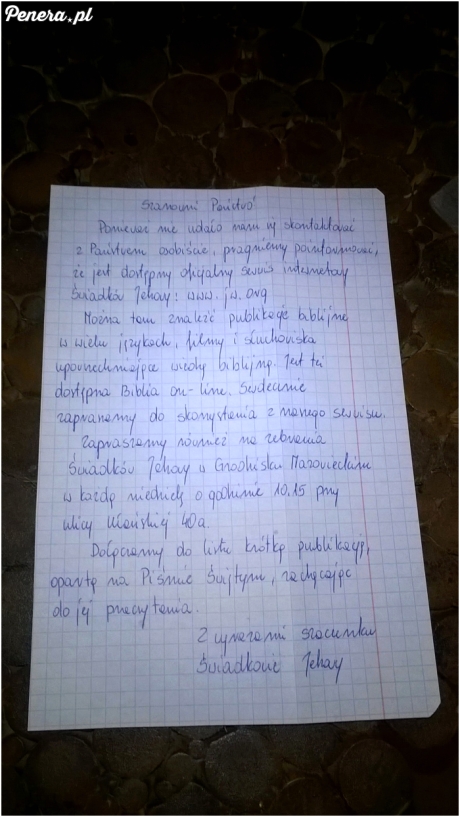 Penera.pl
Szanowni Państwo
Ponieważ nie udało nam się skontaktować
z Państwem osobiście, pragniemy poinformować,
że jest dostępny oficjalny serwis internetowy
Świadków Jehowy: www.jw.org
Można tam znaleźć publikacje biblijne
w wielu językach, filmy i słuchowiska
upowszechniające wiedzę biblijną. Jest też
dostępna Biblia on-line. Serdecznie
zapraszamy do skorzystania z naszego serwisu.
Zapraszamy również na zebrania
Świadków Jehowy w Grodzisku Mazowieckim
w każdą niedzielę o godzinie 10.15 przy
ulicy Ułańskiej 40a.
Dołączamy do listu krótką publikację,
opartą na Piśmie Świętym, zachęcając
do jej przeczytania.
Z wyrazami szacunku
Świadkowie Jehowy